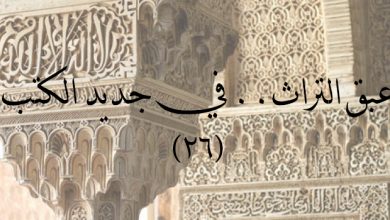 عبق التراث . . في جديد الكتب
(٢٦)